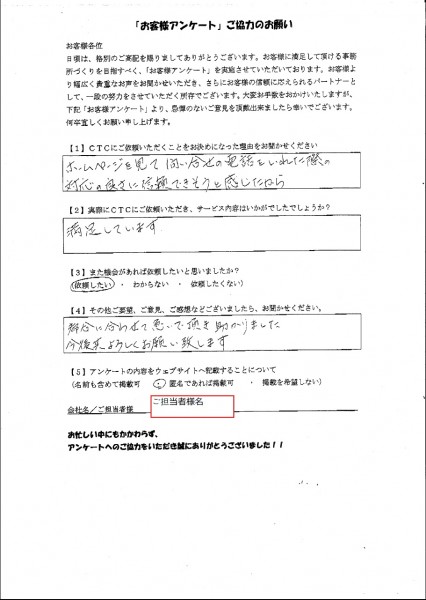 「お客様アンケート」ご協力のお願い
お客様各位
日頃は、格別のご高配を賜りましてありがとうございます。お客様に満足して頂ける事務
所づくりを目指すべく、「お客様アンケート」を実施させていただいております。お客様よ
り幅広く貴重なお声をお聞かせいただき、さらにお客様の信頼に応えられるパートナーと
して、一段の努力をさせていただく所存でございます。大変お手数をおかけいたしますが、
下記「お客様アンケート」より、忌憚のないご意見を頂戴出来ましたら幸いでございます。
何卒宜しくお願い申し上げます。
【1】CTCにご依頼いただくことをお決めになった理由をお聞かせください
ホームページを見て問い合せの電話をいれた際の
対応の良さに信頼できそうと感じたから
【2】実際にCTCにご依頼いただき、サービス内容はいかがでしたでしょうか?
満足しています
【3】また機会があれば依頼したいと思いましたか?
(依頼したい ・ わからない ・ 依頼したくない)
【4】その他ご要望、ご意見、ご感想などございましたら、お聞かせください。
都合に合わせて急いで頂き助かりました
今後共よろしくお願い致します
【5】アンケートの内容をウェブサイトへ記載することについて
(名前も含めて掲載可 ・ 匿名であれば掲載可 ・ 掲載を希望しない)
会社名/ご担当者様 ご担当者様名
お忙しい中にもかかわらず、
アンケートへのご協力をいただき誠にありがとうございました!!